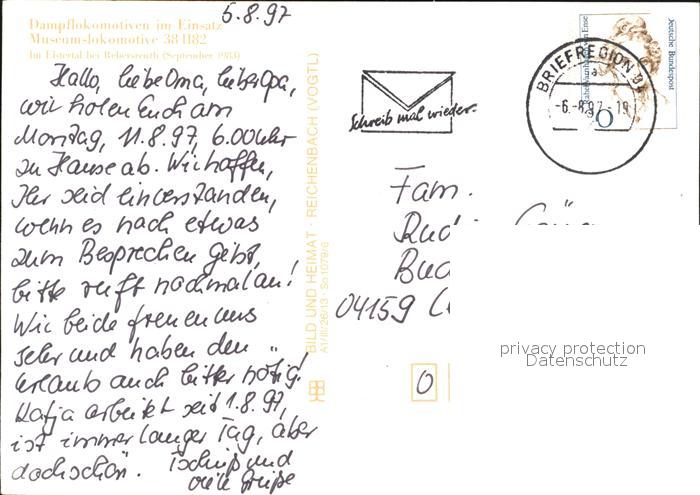 5.8.97
Dampflokomotiven im Einsatz
Museumslokomotive 38 1182
Im Elstertal bei Rebersreuth (September 1983)
Hallo, liebe Oma, lieber Opa,
wir holen Euch am
Montag, 11.8.97, 6.00 Uhr
zu Hause ab. Wir hoffen,
Ihr seid einverstanden,
wenn es noch etwas
zum Besprechen gibt,
bitte ruft nochmal an!
Wir beide freuen uns
sehr und haben den
Urlaub auch bitter nötig!
Katja arbeitet seit 1.8.97,
ist immer langer Tag, aber
doch schön. Tschüß und
viele Grüße
BILD UND HEIMAT · REICHENBACH (VOGTL)
A1/III/26/13 · So 1079/6
Schreib mal wieder.
BRIEFREGION 04
a
-6.-8.97-19
Deutsche Bundespost
Fam.
Rud
Bud
04159
O
privacy protection
Datenschutz